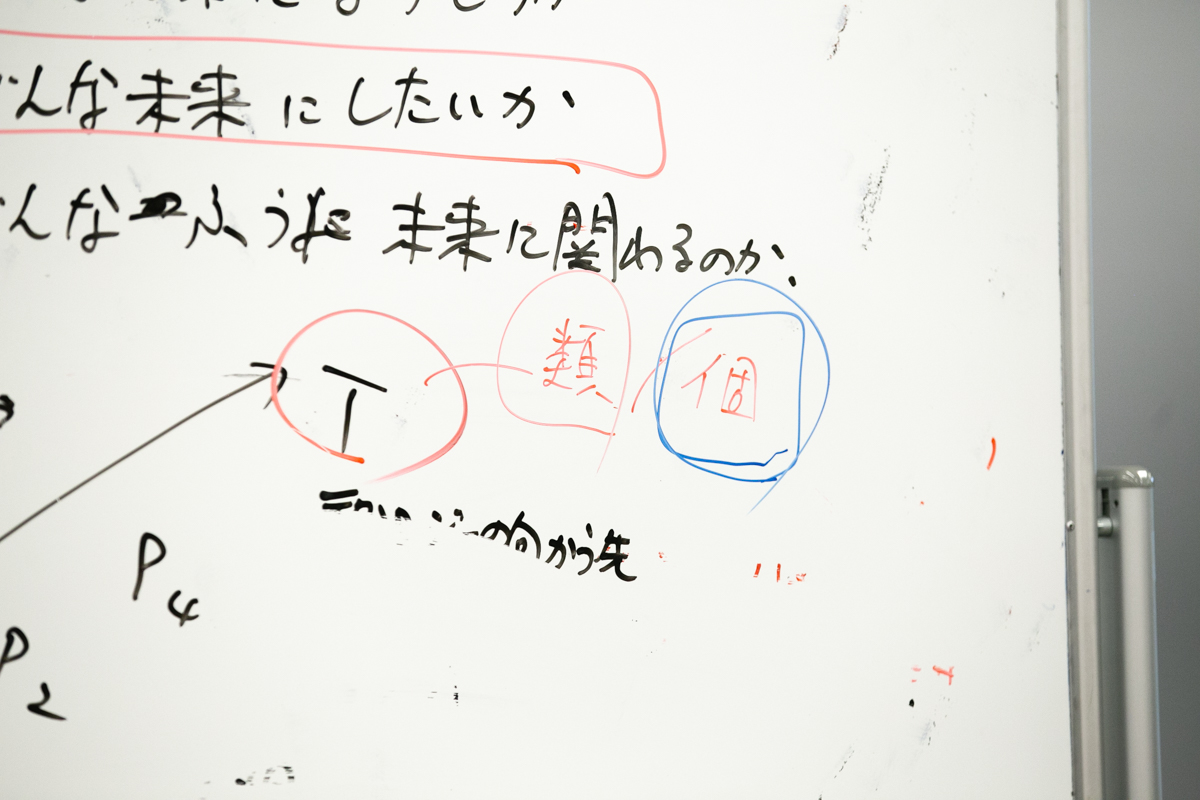 んな未来にしたいか
んなふうに未来に関わるのか、
T 類 個
の向かう先
P4
P2